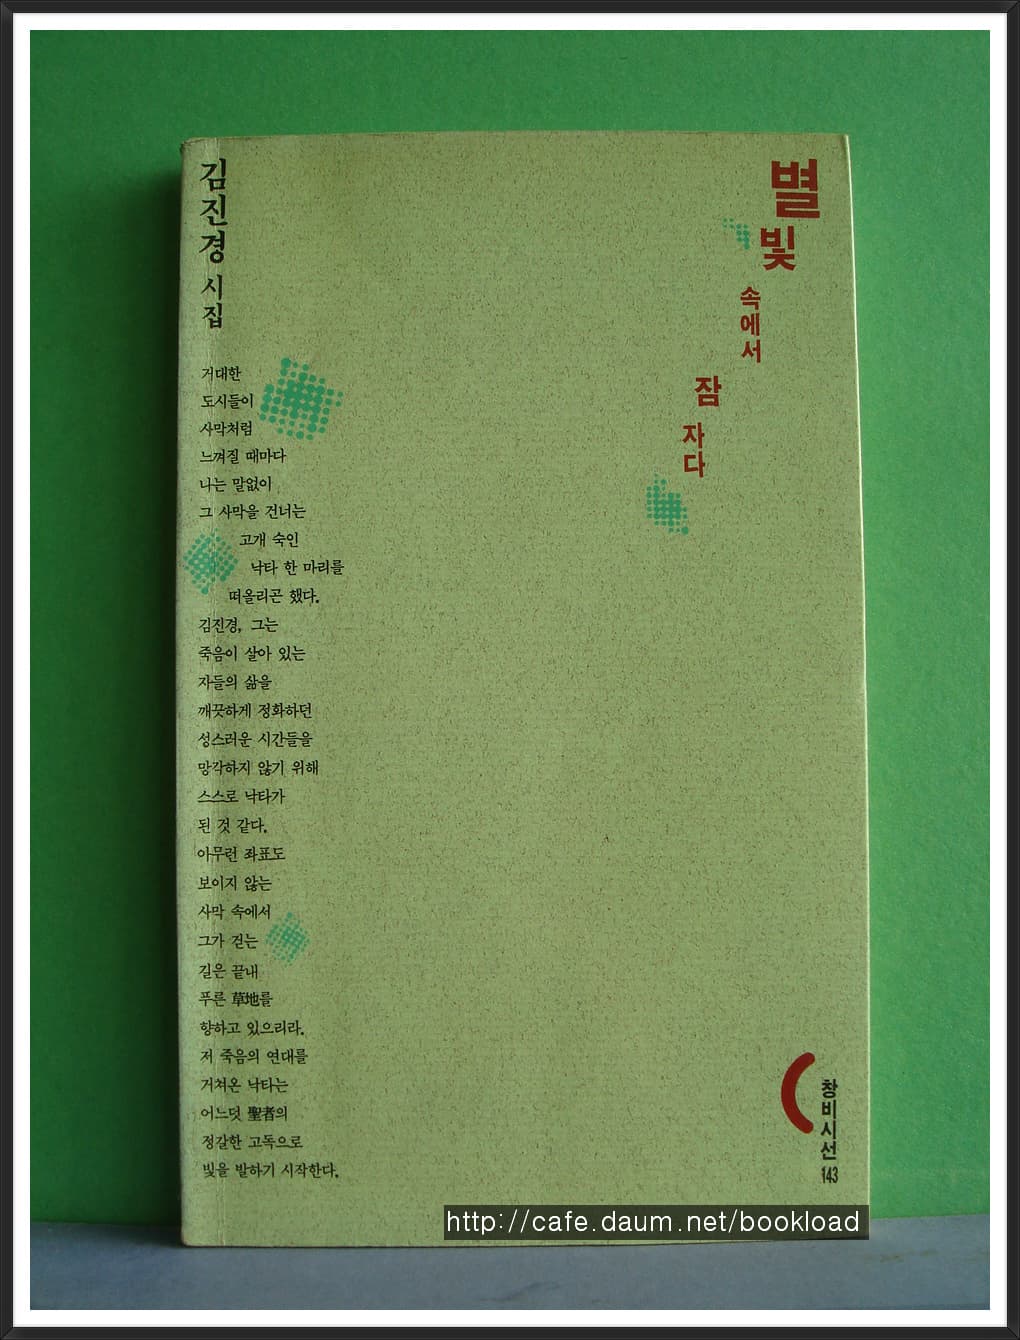 김진경 시집
별빛
속에서
잠
자다
거대한
도시들이
사막처럼
느껴질 때마다
나는 말없이
그 사막을 건너는
고개 숙인
낙타 한 마리를
떠올리곤 했다.
김진경, 그는
죽음이 살아 있는
자들의 삶을
깨끗하게 정화하던
성스러운 시간들을
망각하지 않기 위해
스스로 낙타가
된 것 같다.
아무런 좌표도
보이지 않는
사막 속에서
그가 걷는
길은 끝내
푸른 草地를
향하고 있으리라.
저 죽음의 연대를
거쳐온 낙타는
어느덧 聖者의
정갈한 고독으로
빛을 발하기 시작한다.
창비시선
143
http://cafe.daum.net/bookload